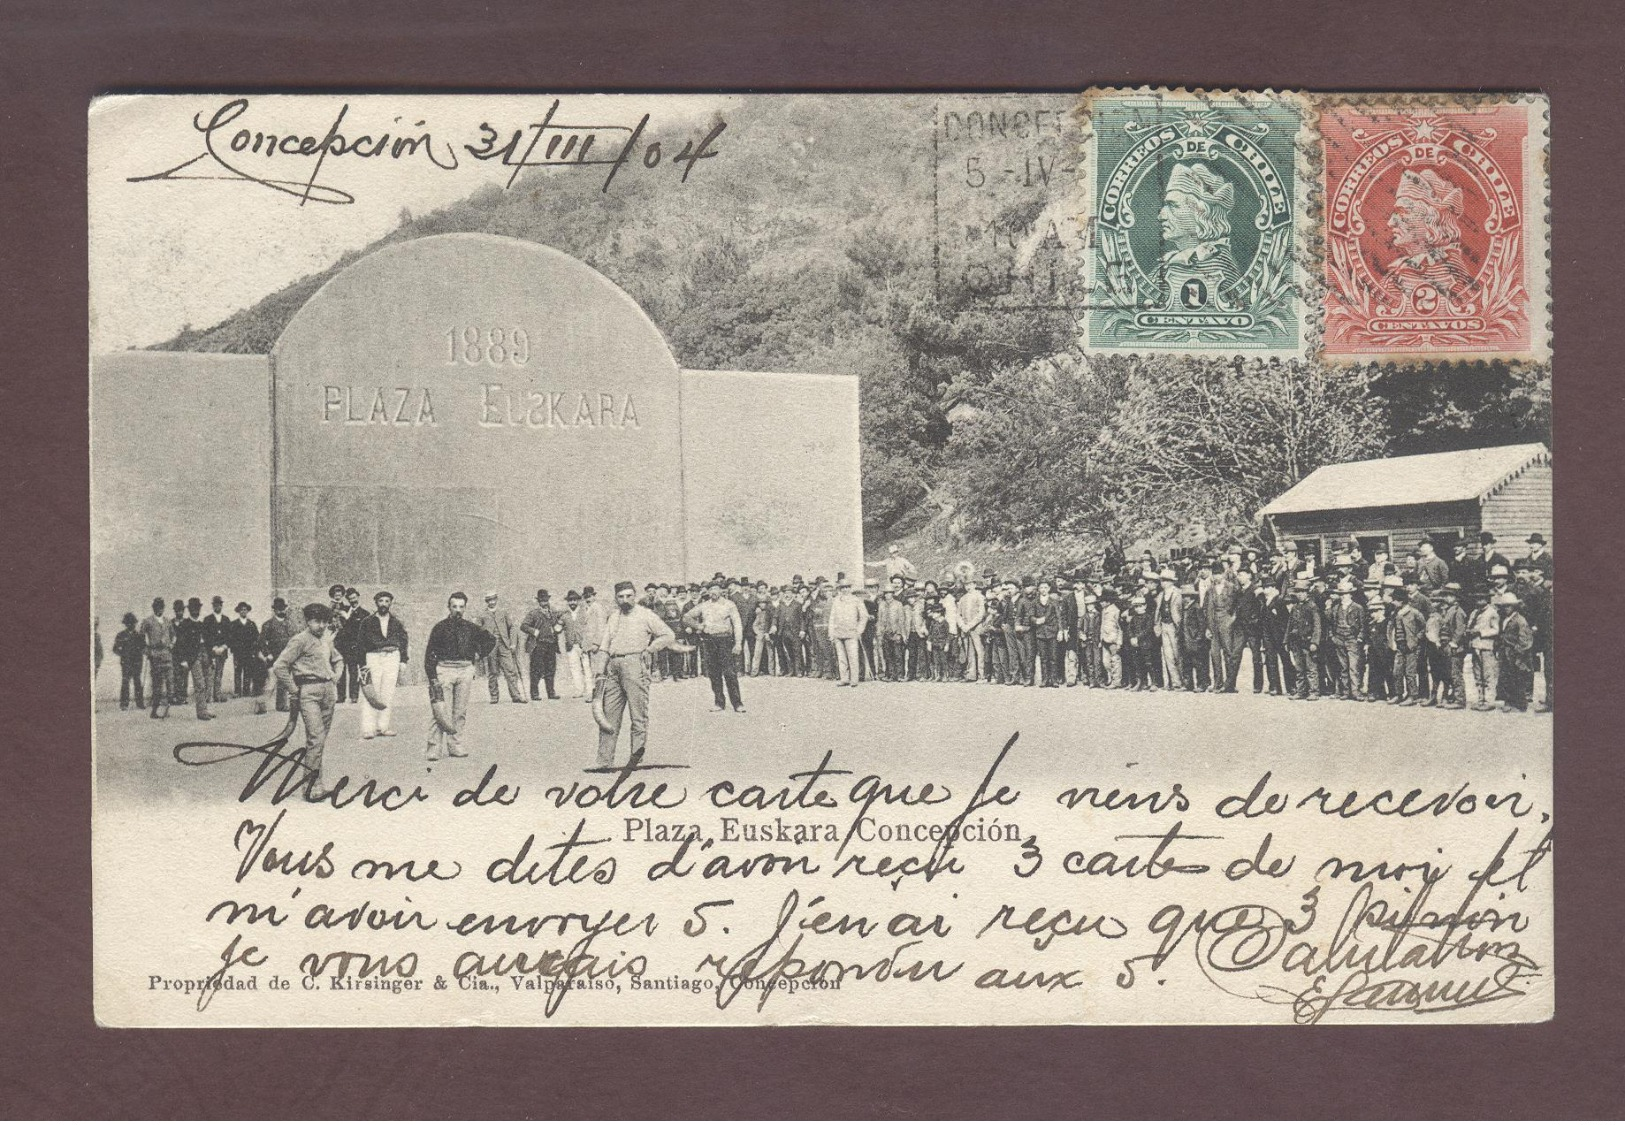 Concepción 31/III/04
CONCEPCION
5-IV-
CHILE
CORREOS DE CHILE
1
CENTAVO
CORREOS DE CHILE
2
CENTAVOS
1889
PLAZA EUSKARA
Merci de votre carte que je viens de recevoir.
Plaza Euskara Concepción
Vous me dites d'avoir reçu 3 cartes de moi et
m'avoir envoyer 5. J'en ai reçu que 3
je vous aurais repondu aux 5. Salutation
Propriedad de C. Kirsinger & Cia., Valparaiso, Santiago, Concepción